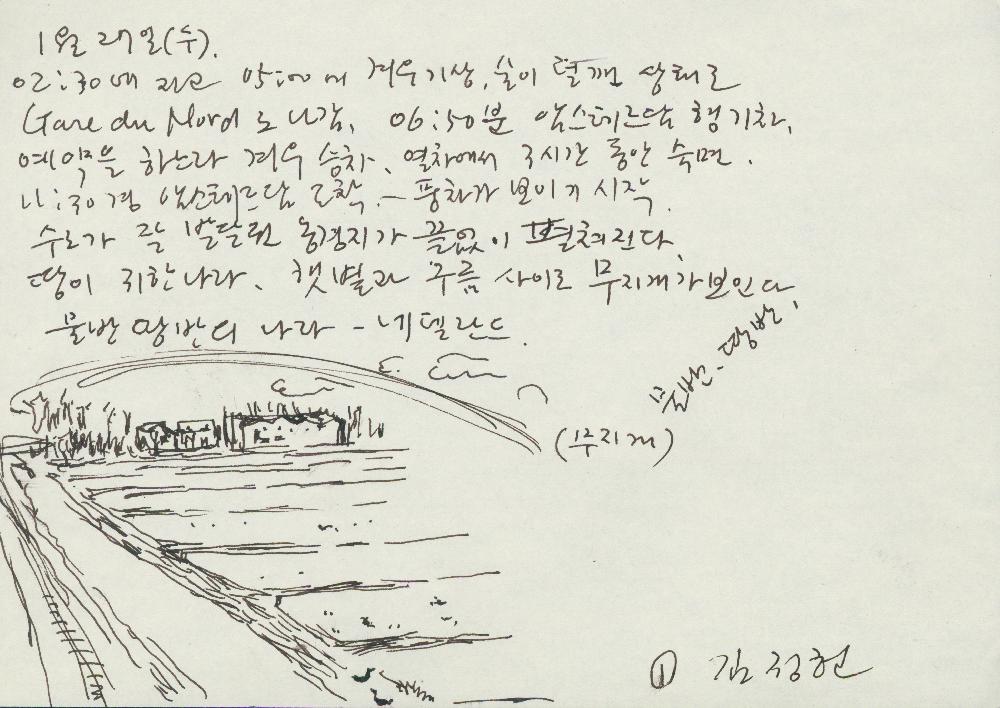 1월 27일(수).
02:30에 자고 05:00에 겨우 기상, 술이 덜깬 상태로
Gare du Nord로 나감, 06:50분 암스테르담 행 기차,
예약을 하느라 겨우 승차. 열차에서 3시간 동안 숙면.
11:30경 암스테르담 도착. – 풍차가 보이기 시작.
수로가 잘 발달된 농경지가 끝없이 펼쳐진다.
땅이 귀한 나라. 햇볕과 구름 사이로 무지개가 보인다
물반 땅반의 나라 – 네델란드.
물반. 땅반.
(무지개)
① 김정헌